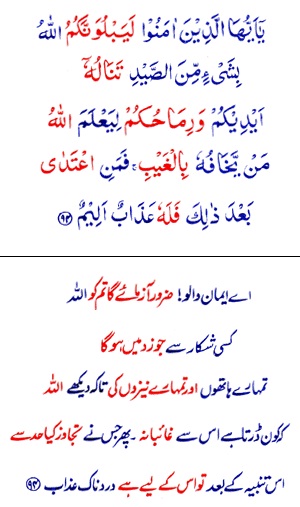 يٰۤاَيُّهَا الَّذِيْنَ اٰمَنُوْا لَيَبْلُوَنَّكُمُ اللّٰهُ
بِشَىْءٍ مِّنَ الصَّيْدِ تَنَالُهٗۤ
اَيْدِيْكُمْ وَرِمَاحُكُمْ لِيَعْلَمَ اللّٰهُ
مَنْ يَّخَافُهٗ بِالْغَيْبِ‌ۚ فَمَنِ اعْتَدٰى
بَعْدَ ذٰ لِكَ فَلَهٗ عَذَابٌ اَلِيْمٌ ﴿۹۴﴾
اے ایمان والو! ضرور آزمائے گا تم کو اللہ
کسی شکار سے جو زد میں ہوگا
تمہارے ہاتھوں اور تمہارے نیزوں کی تاکہ دیکھے اللہ
کہ کون ڈرتا ہے اس سے غائبانہ۔ پھر جس نے تجاوز کیا حد سے
اس تنبیہ کے بعد تو اس کے لیے ہے دردناک عذاب ﴿۹۴﴾